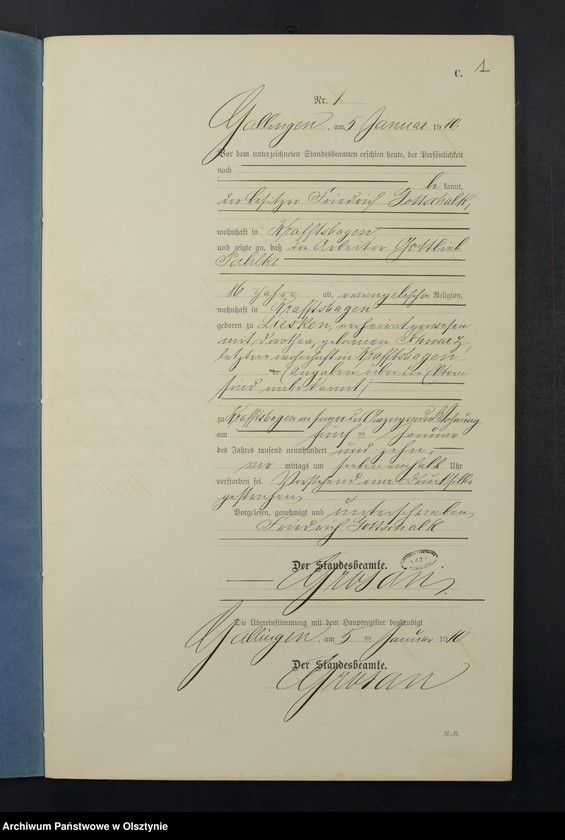 C. 1
Nr. 1
Gallingen, am 5 Januar 1910.
Vor dem unterzeichneten Standesbeamten erschien heute, der Persönlichkeit
nach
be kannt,
der Besitzer Friedrich Gottschalk,
wohnhaft in Krafftshagen
und zeigte an, daß der Arbeiter Gottlieb
86 Jahre alt, evangelischer Religion,
wohnhaft in Krafftshagen
geboren zu Liesken, verheirathet gewesen
mit Dorothea, geborenen Schwarz,
letztere wohnhaft in Krafftshagen
(Angaben über die Eltern
sind unbekannt)
zu Krafftshagen in seiner des Wohnung
am fünf ten Januar
des Jahres tausend neunhundert und zehn,
vor mittags um sieben einhalb Uhr
verstorben sei. Vorstehend eine Drucksilbe
gestrichen
Vorgelesen, genehmigt und unterschrieben
Friedrich Gottschalk
Der Standesbeamte.
Grosan
Die Übereinstimmung mit dem Hauptregister beglaubigt
Gallingen, am 5 ten Januar 1910
Der Standesbeamte.
Grosan
Archiwum Państwowe w Olsztynie